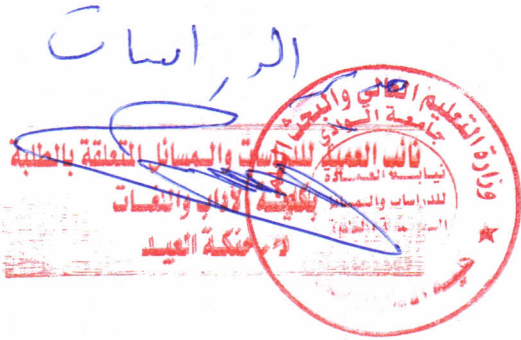 الدراسات
نائب العميد للدراسات والمسائل المتعلقة بالطلبة
بكلية الآداب واللغات
د. حنكة العيد
وزارة التعليم العالي والبحث
جامعة الوادي
نيابة العمادة
للدراسات والمسائل